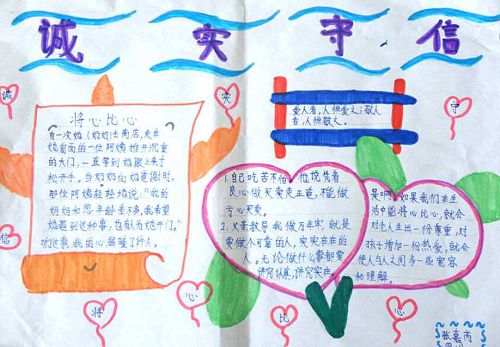 诚 实 守 信
诚
实
守
信
将心比心
有一次奶(奶奶)去商店,走在
她前面的一位阿姨推开沉重
的大门,一直等到她跟上来才
松开手。当奶奶向她道谢时,
那位阿姨轻轻地说:"我的
妈妈和您年龄差不多,我希望
她遇到这种事,也有人为她开门。"
听这事,我的心温暖了许久。
爱人者,人恒爱之;敬人
者,人恒敬之。
1.自己吃苦不怕,他说凭着
良心做天卖走正道,不能做
亏心天卖。
2.父老教导我做万年牢,就是
要做人可靠的人,实实在在的
人。无论做什么事都要
讲究认真,讲究实在。
是啊,如果我们在生
活中能将心比心,就会
对老人生出一份尊重,对
孩子增加一份热爱,就会
使人与人之间多一些宽容
和理解。
将
心
比
心
张嘉芮